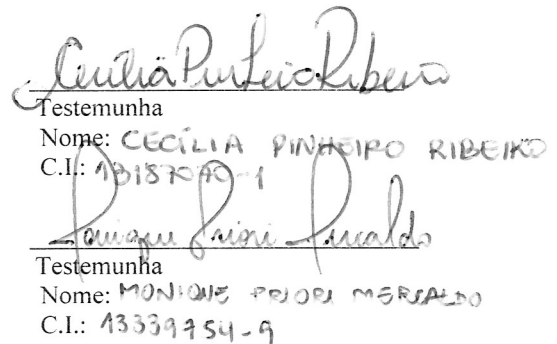 Cecília Pinheiro Ribeiro
Testemunha
Nome: CECÍLIA PINHEIRO RIBEIRO
C.I.: 13187070-1
Monique Priori
Testemunha
Nome: MONIQUE PRIORI
C.I.: 13339754-9